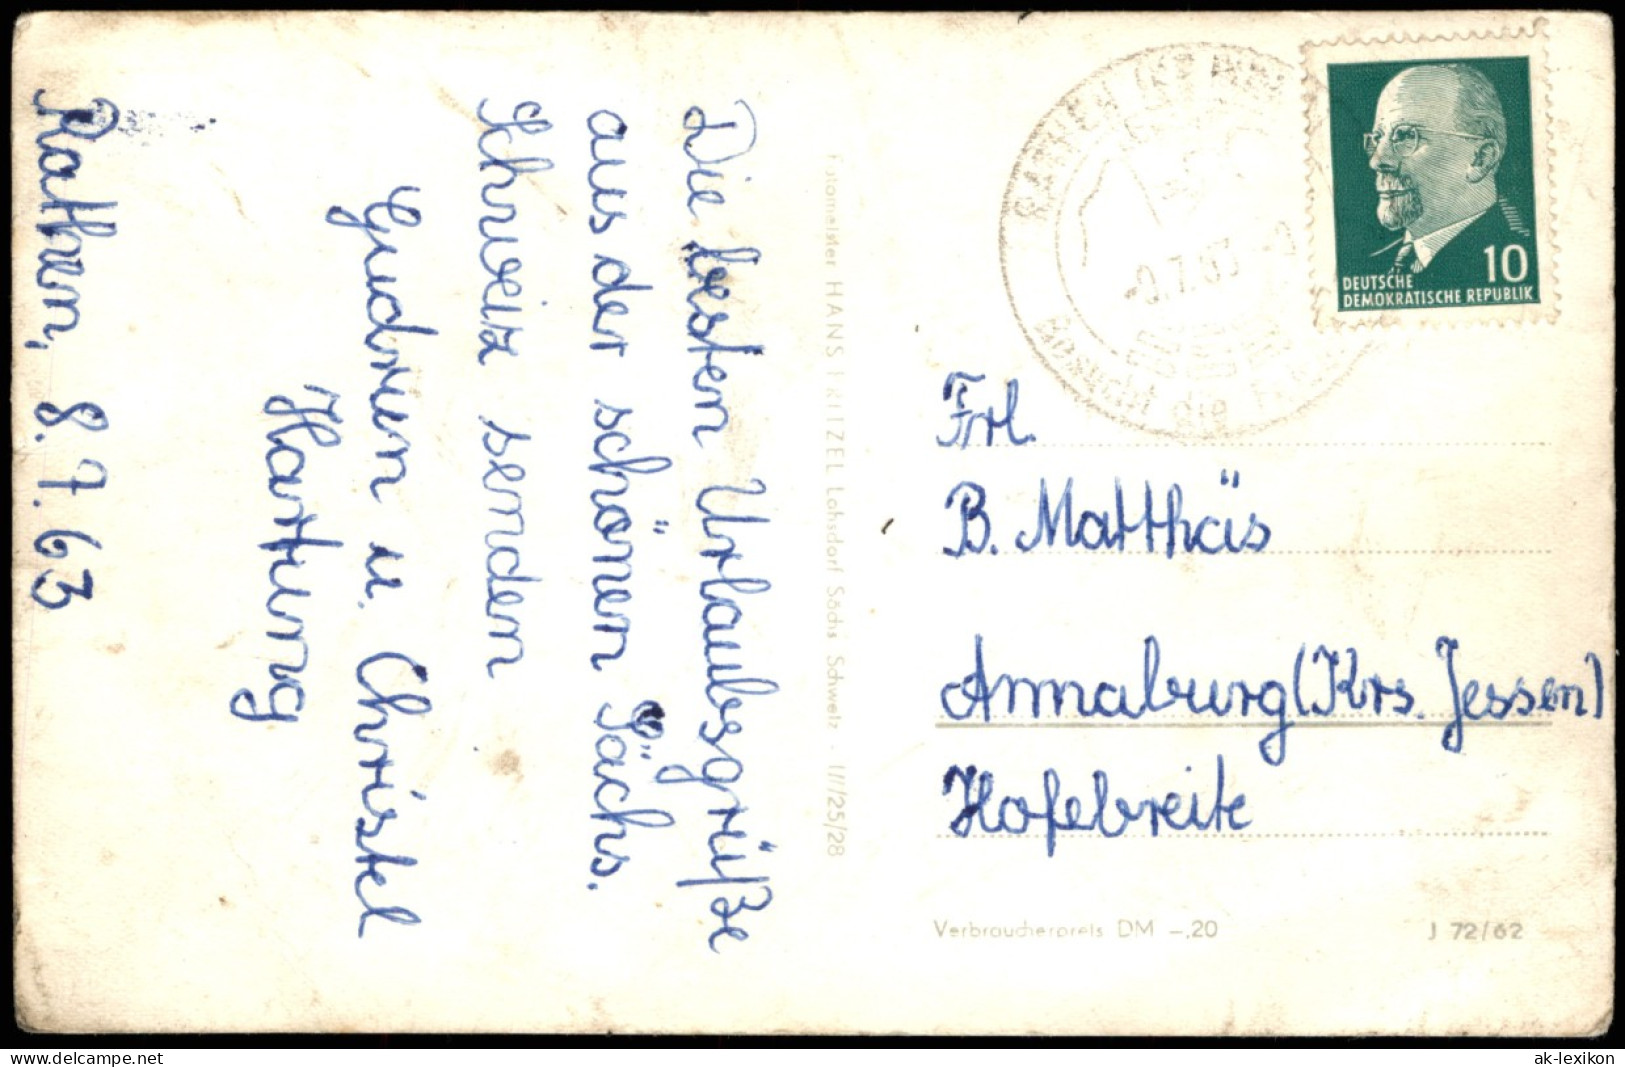 Die besten Urlaubsgrüße
aus der schönen Sächs.
Schweiz senden
Gudrun u. Christel
Hartung
Rathen, 8.7.63
Fotomeister HANS Lohsdorf Sächs Schweiz · 25/28
RATHEN
Besucht die
10
DEUTSCHE
DEMOKRATISCHE REPUBLIK
Frl.
B. Matthäs
Annaburg (Krs. Jessen)
Hofebreite
Verbraucherpreis DM –,20
J 72/62
https://www.delcampe.net
ak-lexikon